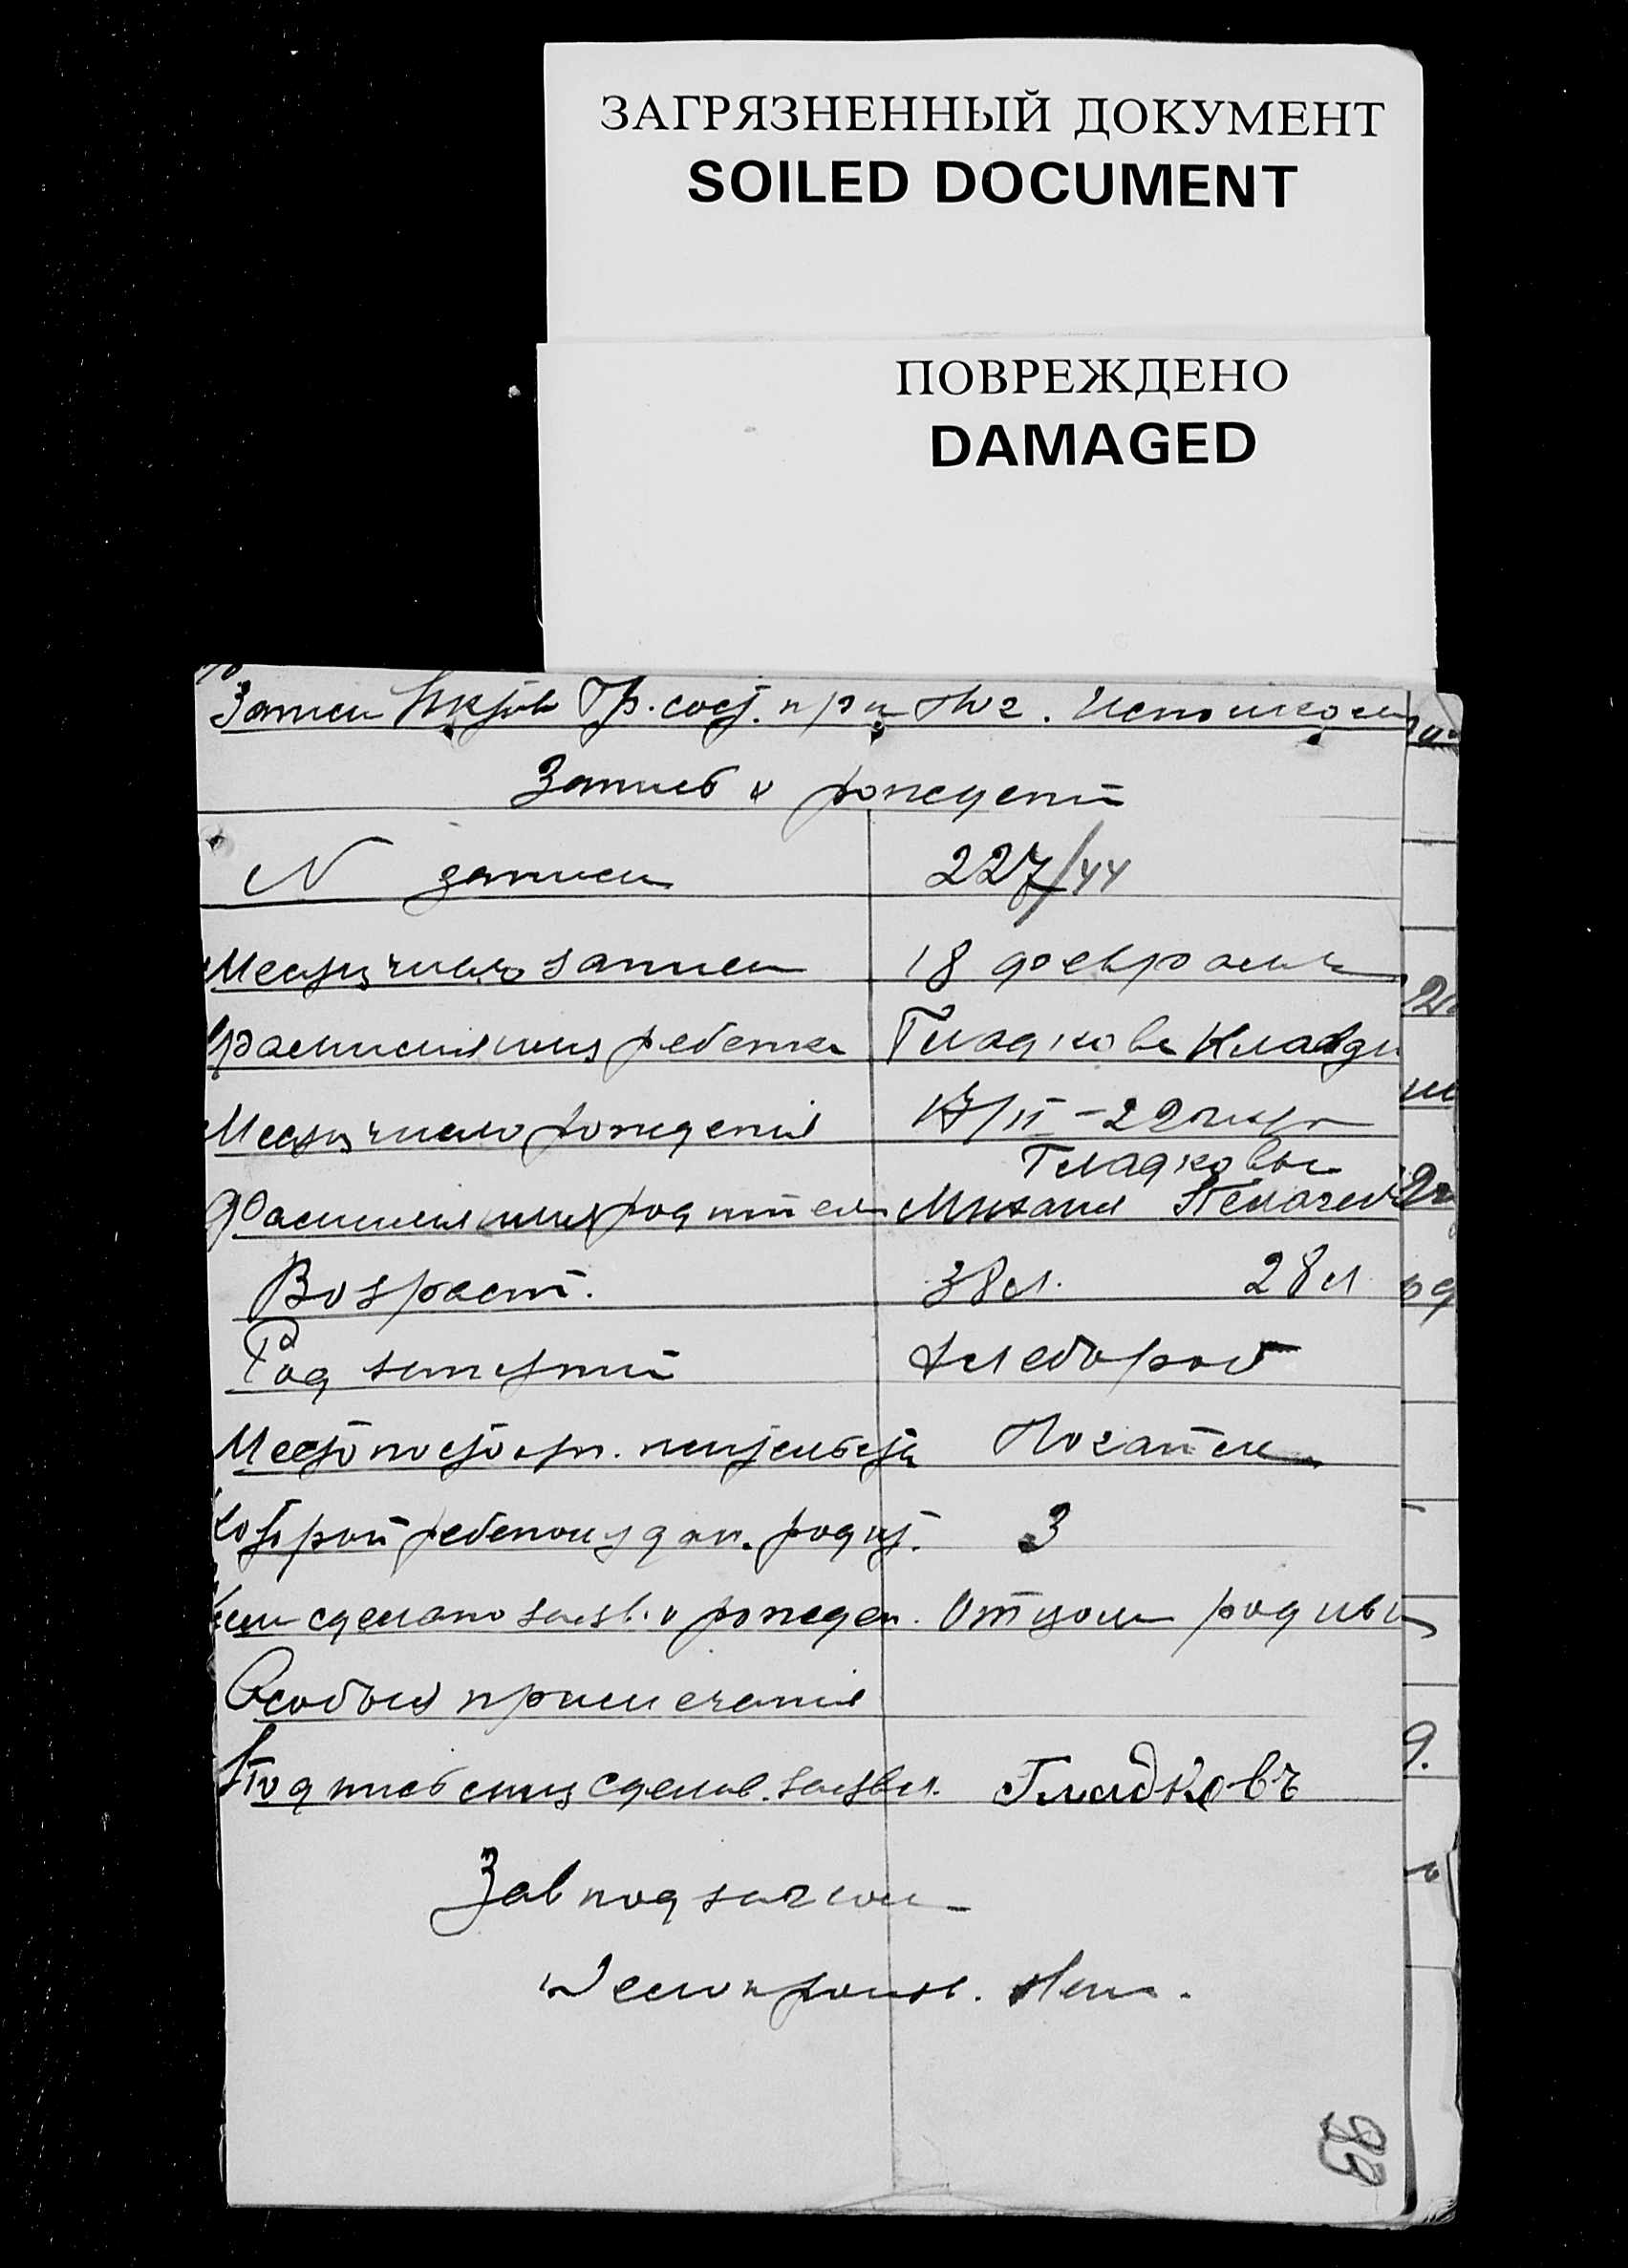 ЗАГРЯЗНЕННЫЙ ДОКУМЕНТ
SOILED DOCUMENT
ПОВРЕЖДЕНО
DAMAGED
Записи Актов Гр. сост. при Пог. Исполкоме
Запись о рождении
N записи 227/44
Месяц число записи 18 февраля
Фамилия имя ребенка Гладкова Клавди
Месяц число рожденія 17/II - 22 года
Гладковы
Фамилия имя родители Михаил Пелагея
Возраст. 38 л. 28 л
Род занятий Хлебороб
Место постоян. жительств Погатом
Который ребенок у дан. родит. 3
Кем сделано заявл. о рожден. Отцом родив
Особыя примечания
Подпись лица сделав. заявл. Гладковъ
Зав подзагсом
Делопроизв.